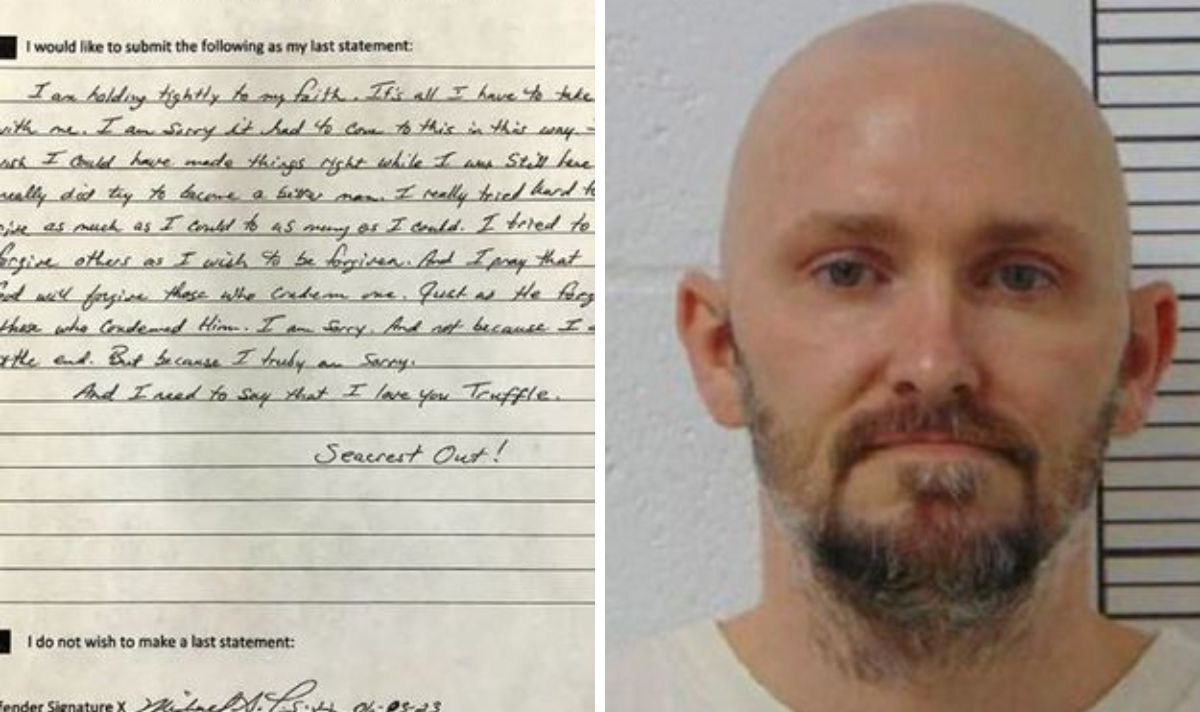 I would like to submit the following as my last statement:
I am holding tightly to my faith. It's all I have to take
with me. I am Sorry it had to come to this in this way.
I could have made things right while I was Still here
really did try to become a better man. I really tried hard to
give as much as I could to as many as I could. I tried to
forgive others as I wish to be forgiven. And I pray that
God will forgive those who condem me. Just as He forg
those who Condemed Him. I am Sorry. And not because I
the end. But because I truly am Sorry.
And I need to say that I love you Truffle.
Seacrest Out!
I do not wish to make a last statement:
fender Signature X Michael 06-05-23